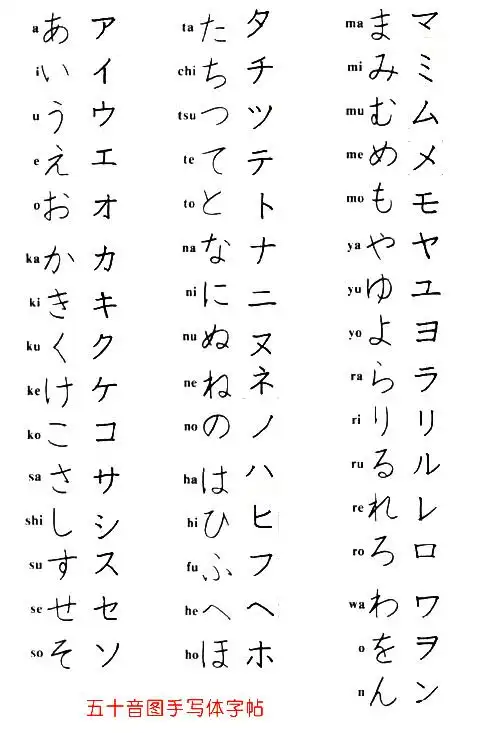 a あ ア
i い イ
u う ウ
e え エ
o お オ
ka か カ
ki き キ
ku く ク
ke け ケ
ko こ コ
sa さ サ
shi し シ
su す ス
se せ セ
so そ ソ
ta た タ
chi ち チ
tsu つ ツ
te て テ
to と ト
na な ナ
ni に ニ
nu ぬ ヌ
ne ね ネ
no の ノ
ha は ハ
hi ひ ヒ
fu ふ フ
he へ ヘ
ho ほ ホ
ma ま マ
mi み ミ
mu む ム
me め メ
mo も モ
ya や ヤ
yu ゆ ユ
yo よ ヨ
ra ら ラ
ri り リ
ru る ル
re れ レ
ro ろ ロ
wa わ ワ
o を ヲ
n ん ン
五十音图手写体字帖